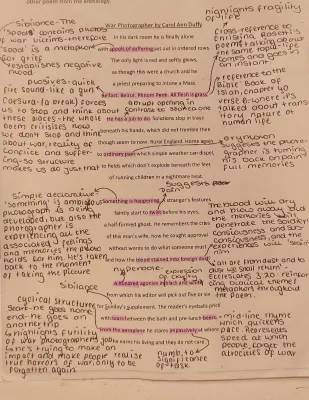 other poem from the anthology.
War Photographer by Carol Ann Duffy
In his dark room he is finally alone
with spools of suffering set out in ordered rows.
The only light is red and softly glows,
as though this were a church and he
a priest preparing to intone a Mass.
Belfast. Beirut. Phnom Penh. All flesh is grass.
He has a job to do. Solutions slop in trays
beneath his hands, which did not tremble then
though seem to now. Rural England. Home again
to ordinary pain which simple weather can dispel,
to fields which don't explode beneath the feet
of running children in a nightmare heat.
Something is happening. A stranger's features
faintly start to twist before his eyes,
a half-formed ghost. He remembers the cries
of this man's wife, how he sought approval
without words to do what someone must
and how the blood stained into foreign dust.
A hundred agonies in black and white
from which his editor will pick out five or six
for Sunday's supplement. The reader's eyeballs prick
with tears between the bath and pre-lunch beers.
From the aeroplane he stares impassively at where
he earns his living and they do not care.
Sibilance - The
'spools' contains photos
of war victims - therefore
spool is a metaphor
for grief
- establishes negative
mood
plosives - quick
fire sound - like a gun
(Caesura: to break) forces
us to stop and think about
these places - the whole
poem criticises how
we don't stop and think
about war, reality of
conflict and suffer-
ing - so structure
makes us do just that
abrupt opening in
contrast to section one
highlights fragility
of life
cross-reference to
same topic - life
comes and goes in
an instant.
reference to the
Bible: Book of
Isiah, chapter 40
verse 6 -
talked about transi-
tory nature of
human life.
oxymoron
suggests the photo-
grapher is turning
his back on pain
full memories
suggests
pain
Simple declarative
'Something' is ambiguous
photograph is being
developed, but also the
photographer is
experiencing all the
associated feelings
and memories the photo
holds for him. He's taken
back to the moment
of taking the picture
The blood will dry
and pass away but
the memories will
penetrate the soldier's
conciousness and sub-
conciousness, and the
experiences will 'stain'
him
'You are from dust and to
dust we shall return' -
Ecclesiastes 3:20 reinfor-
cing biblical themes
maintained throughout
the poem.
Sibilance
cyclical structure
start - he goes home
end - he goes on
another trip
Highlights futility
of war photographer's job
impact and make people realise
true horrors of war, only to be
forgotten again.
numb, to
significance
of task
mid-line rhyme
which quickens
pace. Represents
speed at which
people forget the
atrocities of war